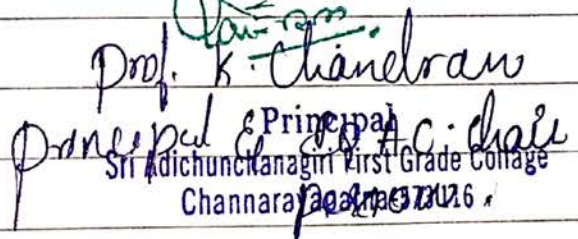 Prof. K. Chandran
Principal & I.Q.A.C. Chair
Principal
Sri Adichunchanagiri First Grade Collage
Channarayapatna-573116.
person.